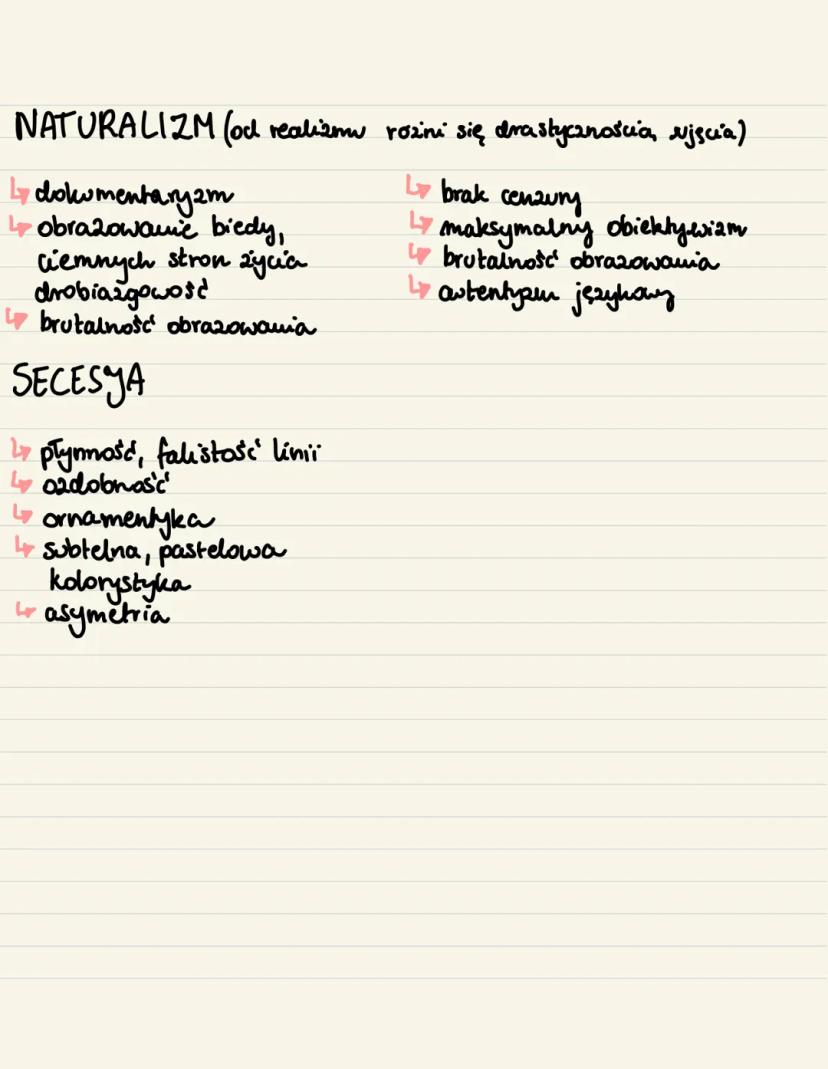 NATURALIZM (od realizmu różni się drastycznością ujęcia)
↳ dokumentaryzm
↳ obrazowanie biedy,
ciemnych stron życia
drobiazgowość
↳ brutalność obrazowania
↳ brak cenzury
↳ maksymalny obiektywizm
↳ brutalność obrazowania
↳ autentyzm językowy
SECESJA
↳ płynność, falistość linii
↳ ozdobność
↳ ornamentyka
↳ subtelna, pastelowa
kolorystyka
↳ asymetria